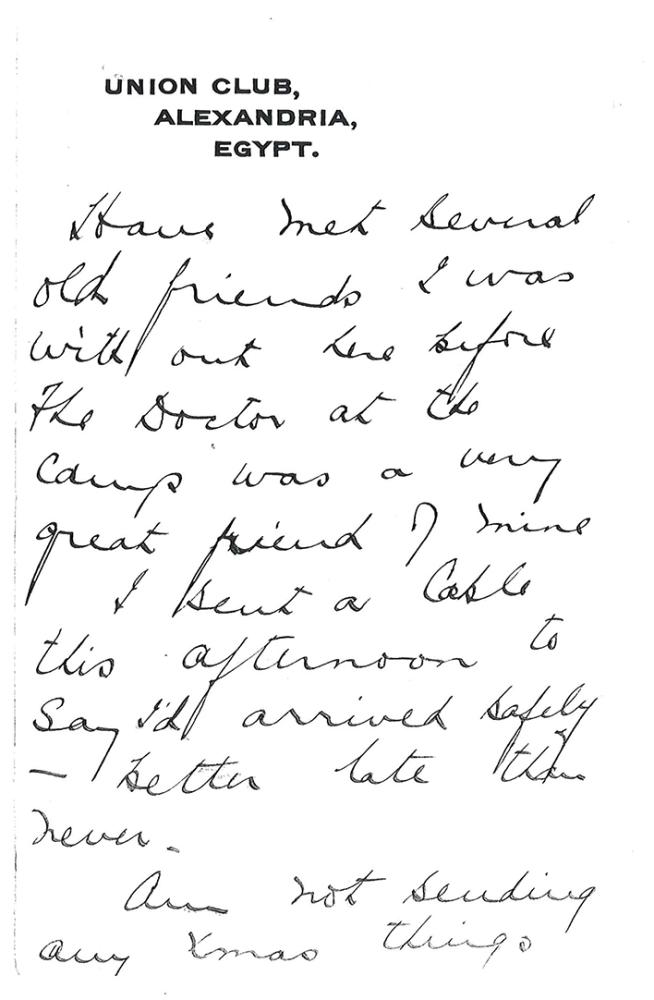 UNION CLUB,
ALEXANDRIA,
EGYPT.
Have met several
old friends I was
with out here before
The Doctor at the
Camp was a very
great friend of mine
I sent a Cable
this afternoon to
Say I'd arrived safely
– better late than
never –
Am not sending
any Xmas things